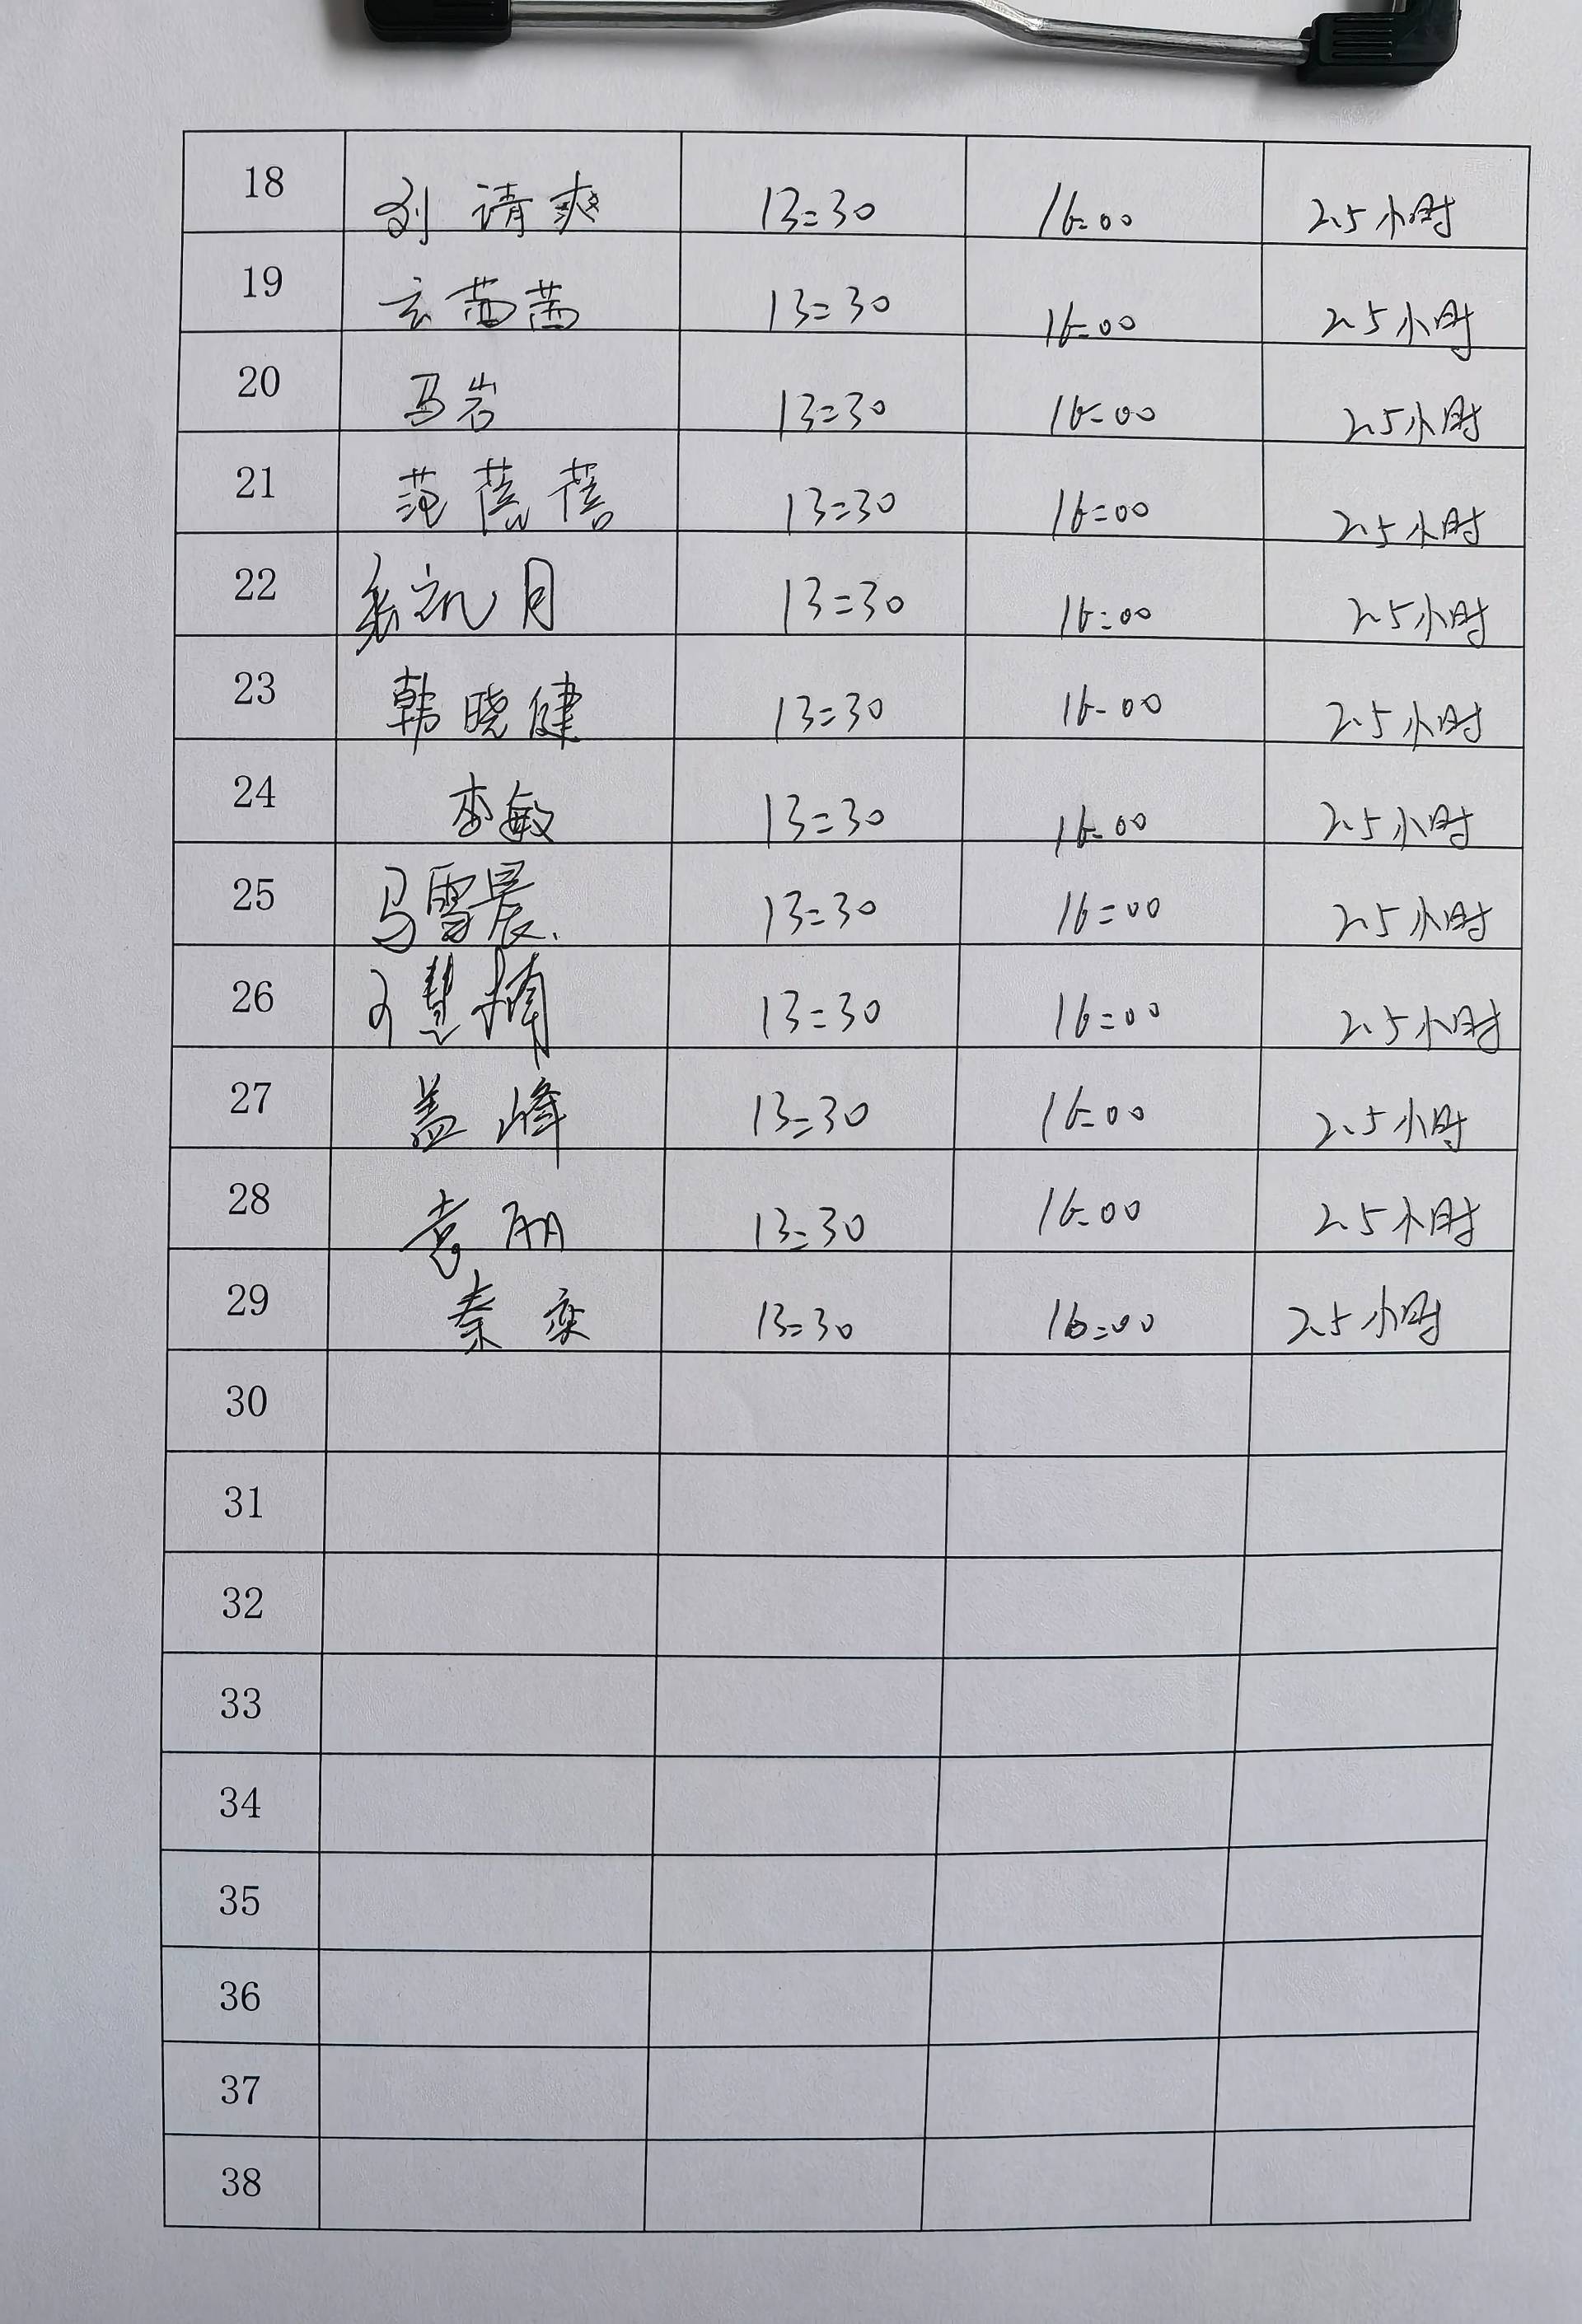 18 刘请爽 13:30 16:00 2.5小时
19 玄茜茜 13:30 16:00 2.5小时
20 马岩 13:30 16:00 2.5小时
21 范蓓蓓 13:30 16:00 2.5小时
22 月 13:30 16:00 2.5小时
23 韩晓健 13:30 16:00 2.5小时
24 李敏 13:30 16:00 2.5小时
25 马雪晨 13:30 16:00 2.5小时
26 慧楠 13:30 16:00 2.5小时
27 盖峰 13:30 16:00 2.5小时
28 袁丽 13:30 16:00 2.5小时
29 秦奕 13:30 16:00 2.5小时
30
31
32
33
34
35
36
37
38